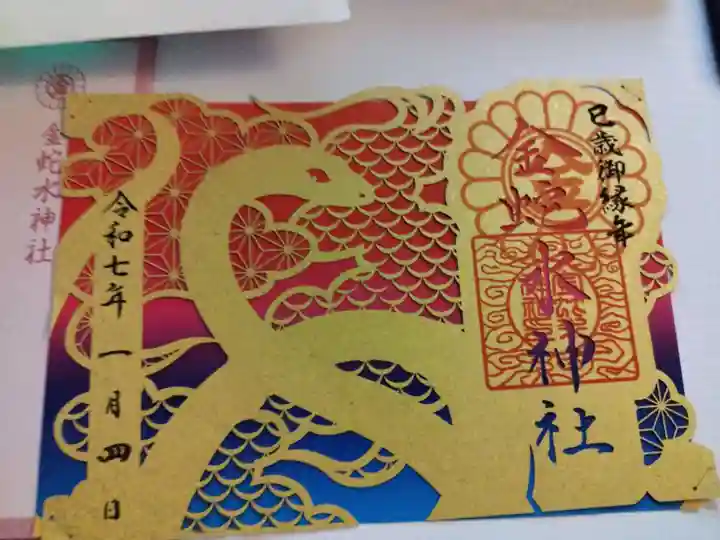 巳歳御縁年
金蛇水神社
令和七年 一月四日
金蛇水神社